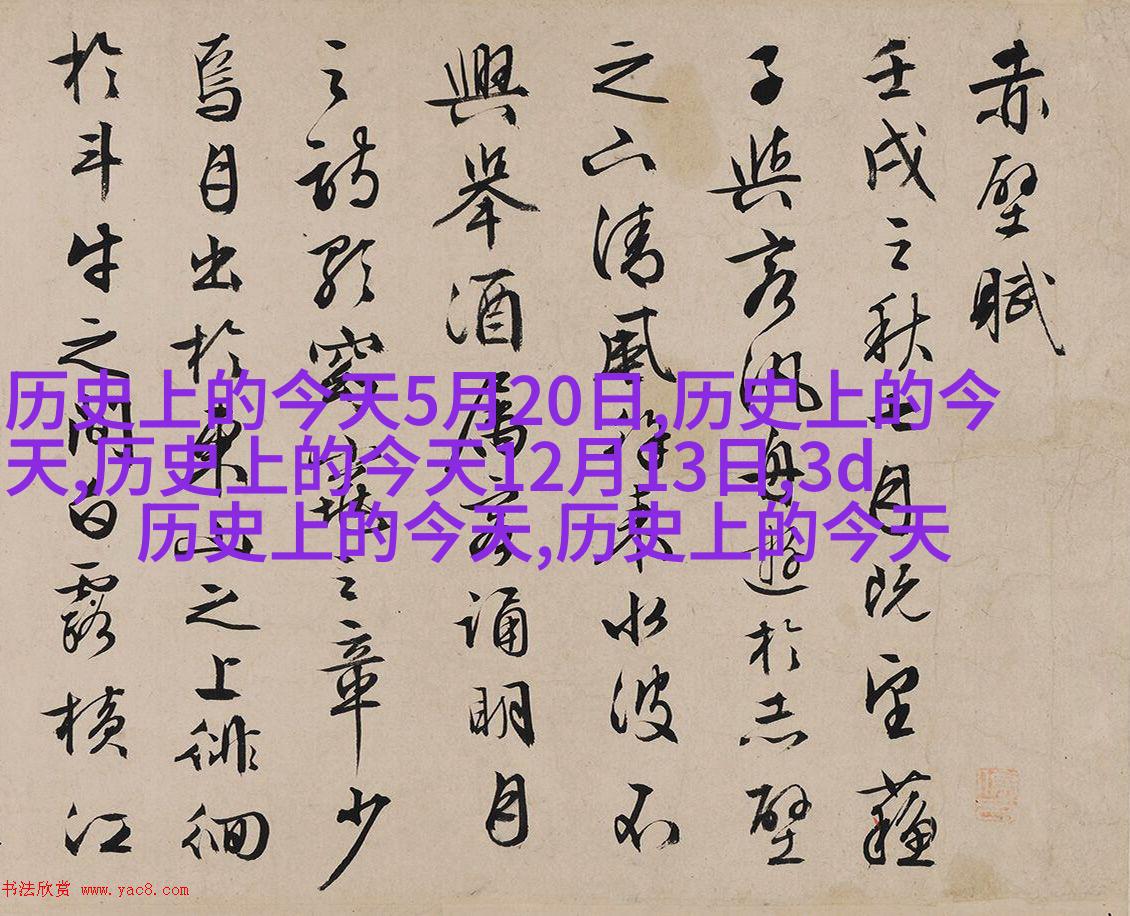 赤壁賦
壬戌之秋七月既望蘇
子與客汎舟遊於赤壁
之下清風徐來水波不
興舉酒屬客誦明月
之詩歌窈窕之章少
焉月出於東山之上徘徊
於斗牛之間白露橫江
历史上的今天5月20日,历史上的今
天,历史上的今天12月13日,3d
历史上的今天,历史上的今天
书法欣赏 www.yac8.com